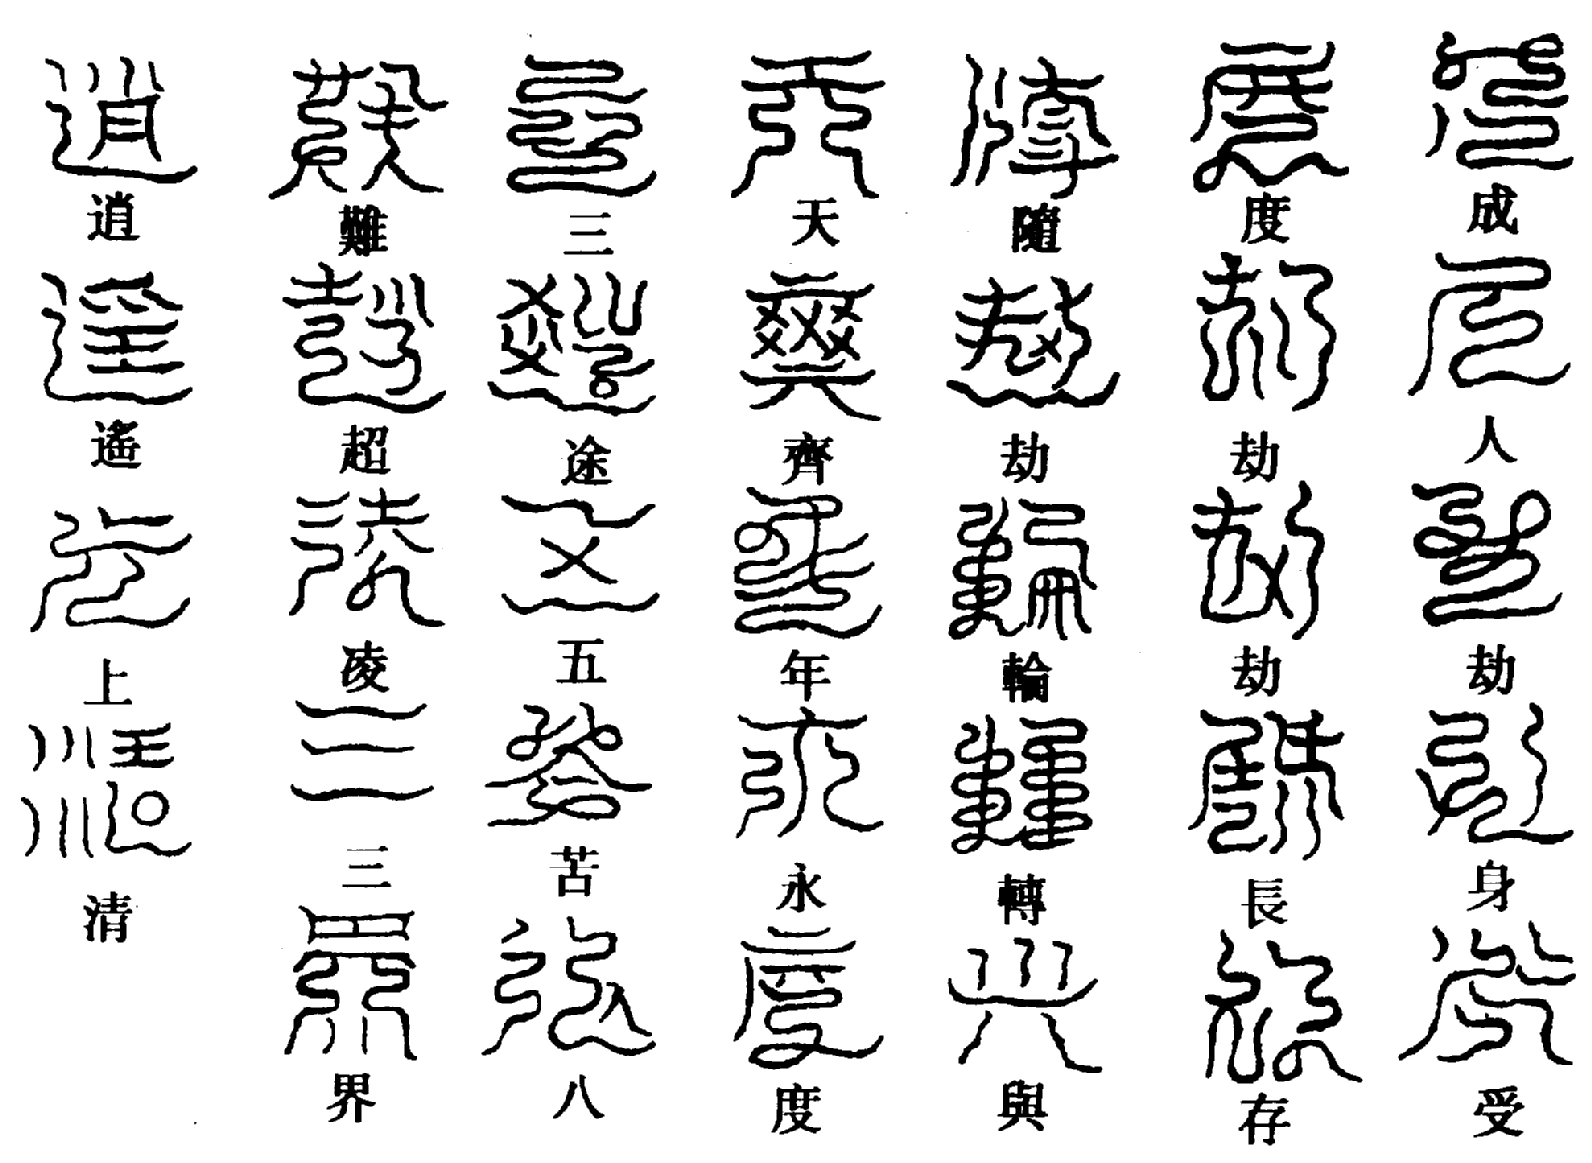 成人劫身受
度劫劫長存
隨劫輪轉與
天齊年永度
三途五苦八
難超凌三界
逍遙上清